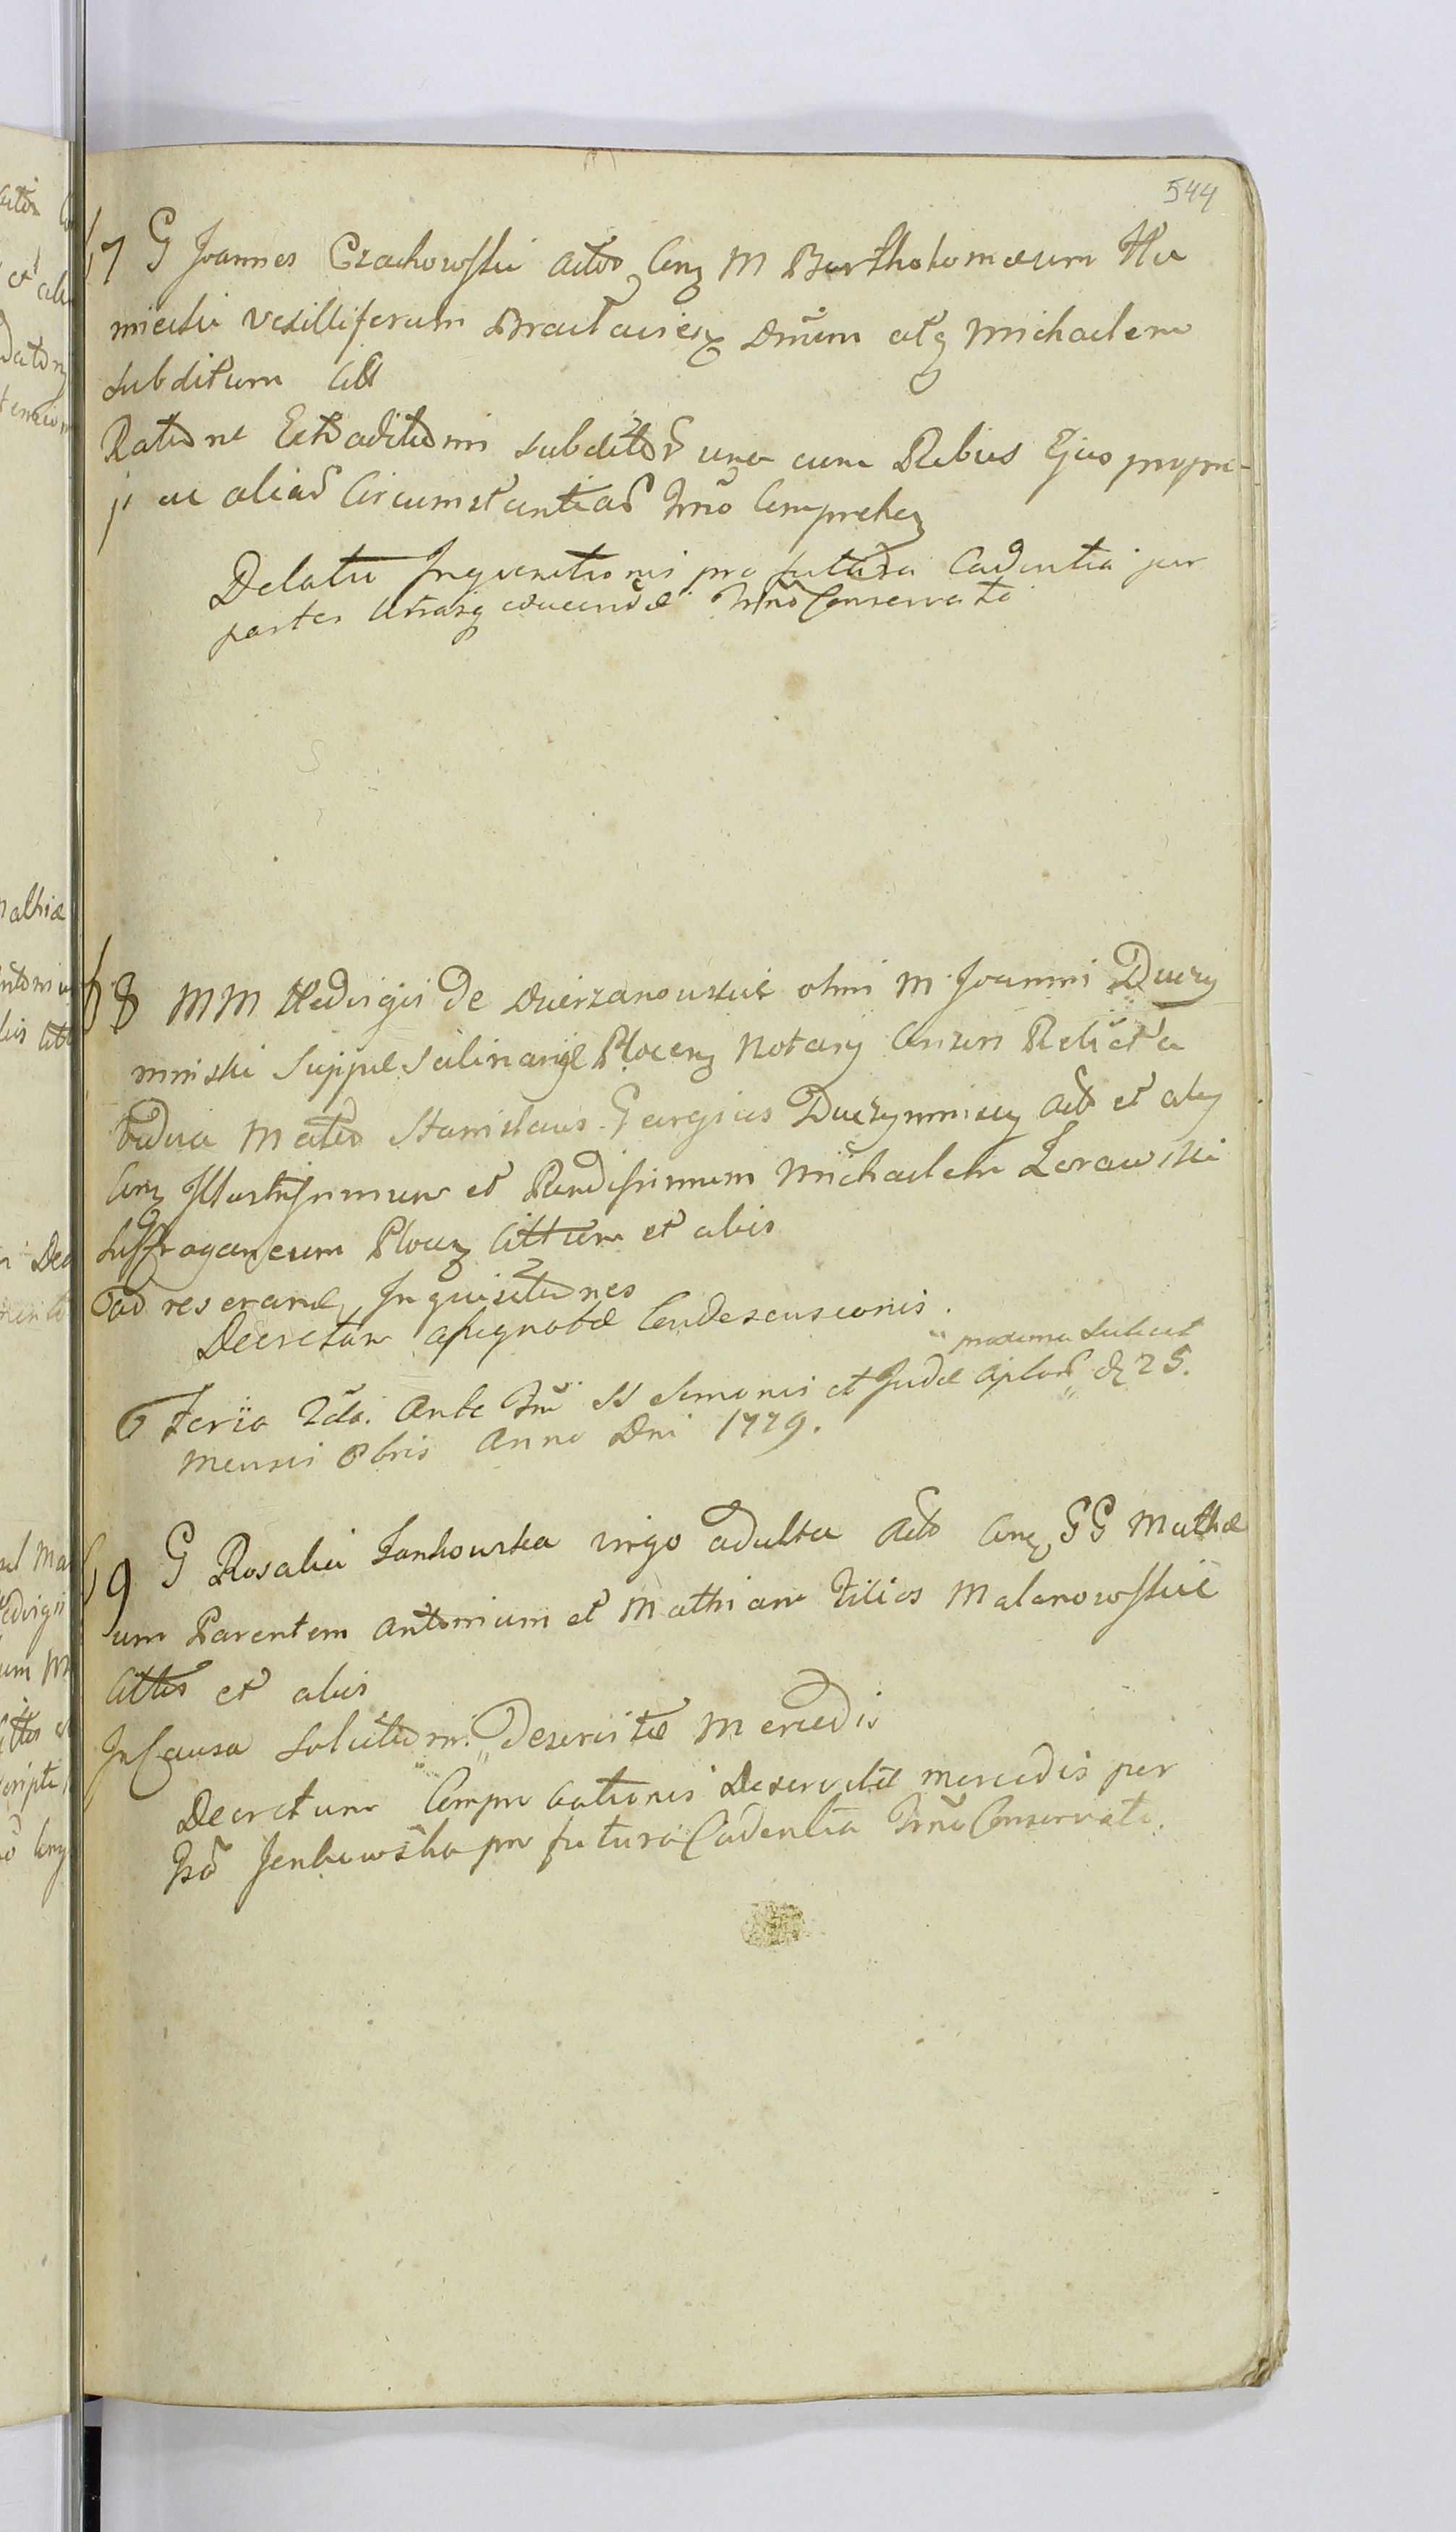 544
7 G Joannes Czachowskii actor Con M Bartholomæum Hu
miecki vexilliferum Braclavien Dnum atq Michaelem
subditum Citt
Ratione Extraditionis subditor una cum Rebus Ejus propri
j ac alias Circumstantias Trno Comprehen
Delatio Inquisitionis pro futura Cadentia per
partes utrasq educendæ Trno Conservato
8 MM Hedvigis de Dzierzanowskie olim M Joanni Duczy
minski Suppæ Salinariæ Plocen Notarij Consors Relicta
vidua Mater Stanislaus Georgius Duczyminscy Act et alij
Con Illustrissimum et Rendissimum Michaelem Zorawski
Suffraganeum Plocen Cittum et aliis
ad reserand Inquisitiones
Decretum assignatæ Condescensionis.
proxima Scilicet
Feria 2da. Ante Fm SS Simonis et Judæ Aplor d 25.
Mensis 8bris Anno Dni 1779.
9 G Rosalia Jankowska virgo adulta Act Con GG Mathæ
um Parentem Antonium et Mathiam Filios Malanowskie
Cittos et aliis
In Causa Solutionis Deservitæ Mercedis
Decretum Comprobationis Deservitæ mercedis per
Gsa Jankowska pro futura Cadentia Trno Conservato.